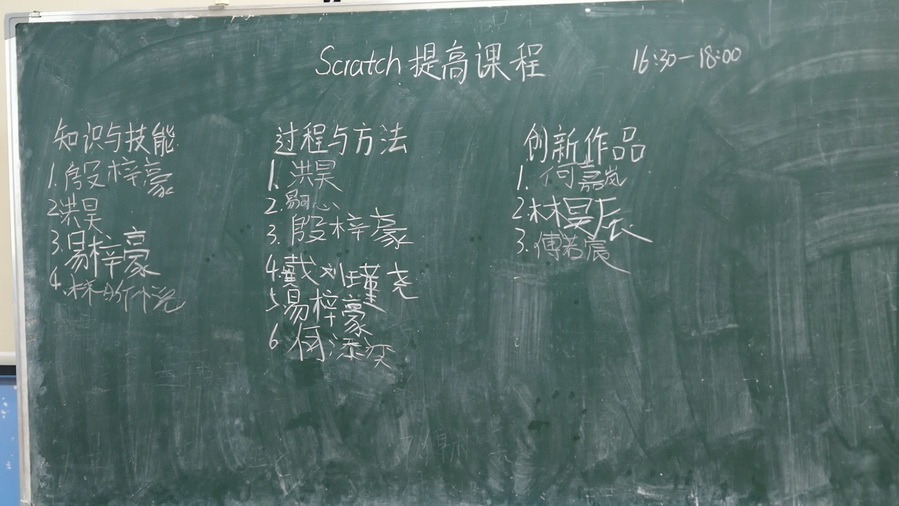 Scratch 提高课程
16:30—18:00
知识与技能
1. 殷梓豪
2. 洪昊
3. 易梓豪
4. 林
过程与方法
1. 洪昊
2.
3. 殷梓豪
4. 戴刘瑾尧
5. 易梓豪
6. 何添
创新作品
1. 何嘉岚
2. 林昊辰
3. 傅若宸